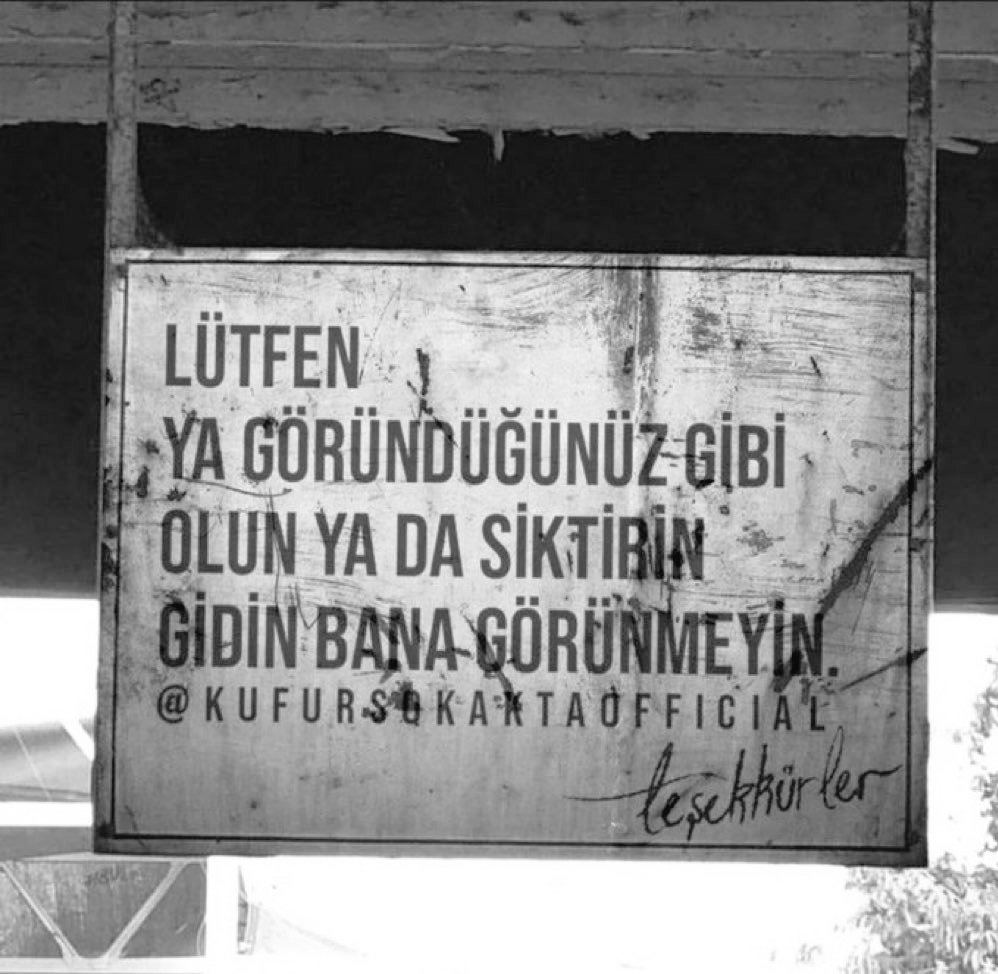 LÜTFEN
YA GÖRÜNDÜĞÜNÜZ GİBİ
OLUN YA DA SİKTİRİN
GİDİN BANA GÖRÜNMEYİN.
@KUFURSOKAKTAOFFICIAL
teşekkürler